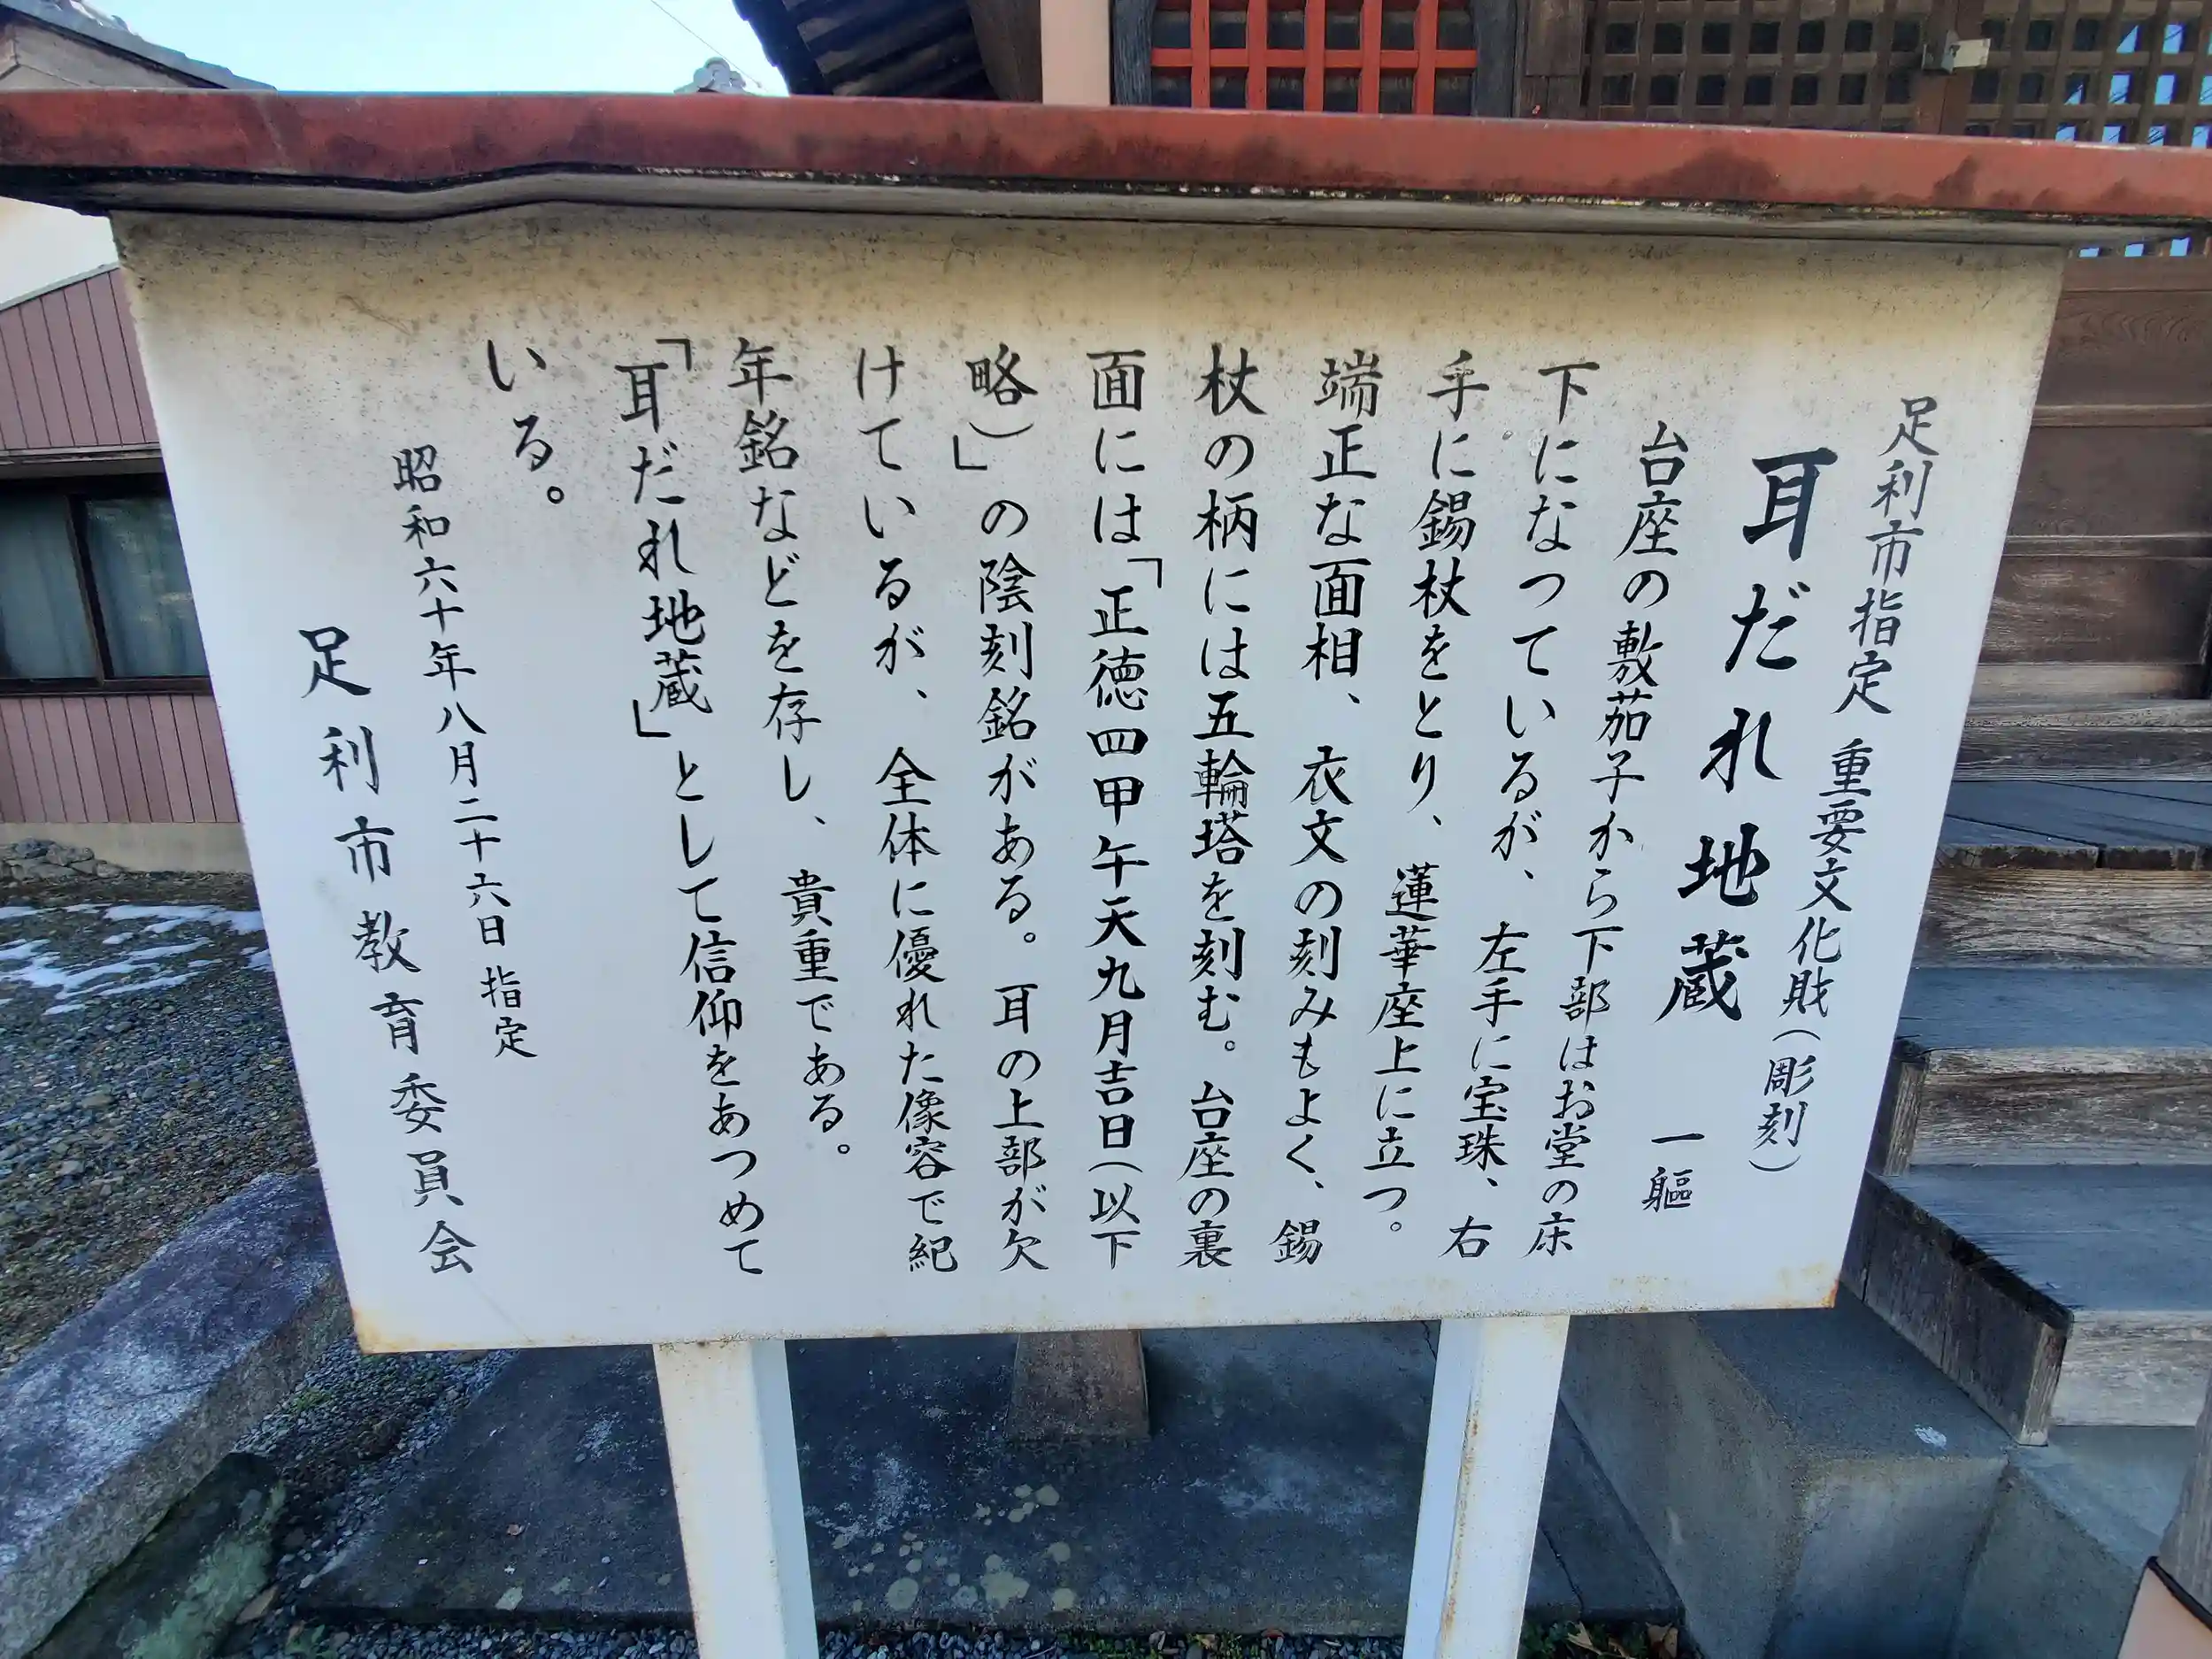 足利市指定 重要文化財(彫刻)
耳だれ地蔵 一軀
台座の敷茄子から下部はお堂の床
下になっているが、左手に宝珠、右
手に錫杖をとり、蓮華座上に立つ。
端正な面相、衣文の刻みもよく、錫
杖の柄には五輪塔を刻む。台座の裏
面には「正徳四甲午天九月吉日(以下
略)」の陰刻銘がある。耳の上部が欠
けているが、全体に優れた像容で紀
年銘などを存し、貴重である。
「耳だれ地蔵」として信仰をあつめて
いる。
昭和六十年八月二十六日 指定
足利市教育委員会